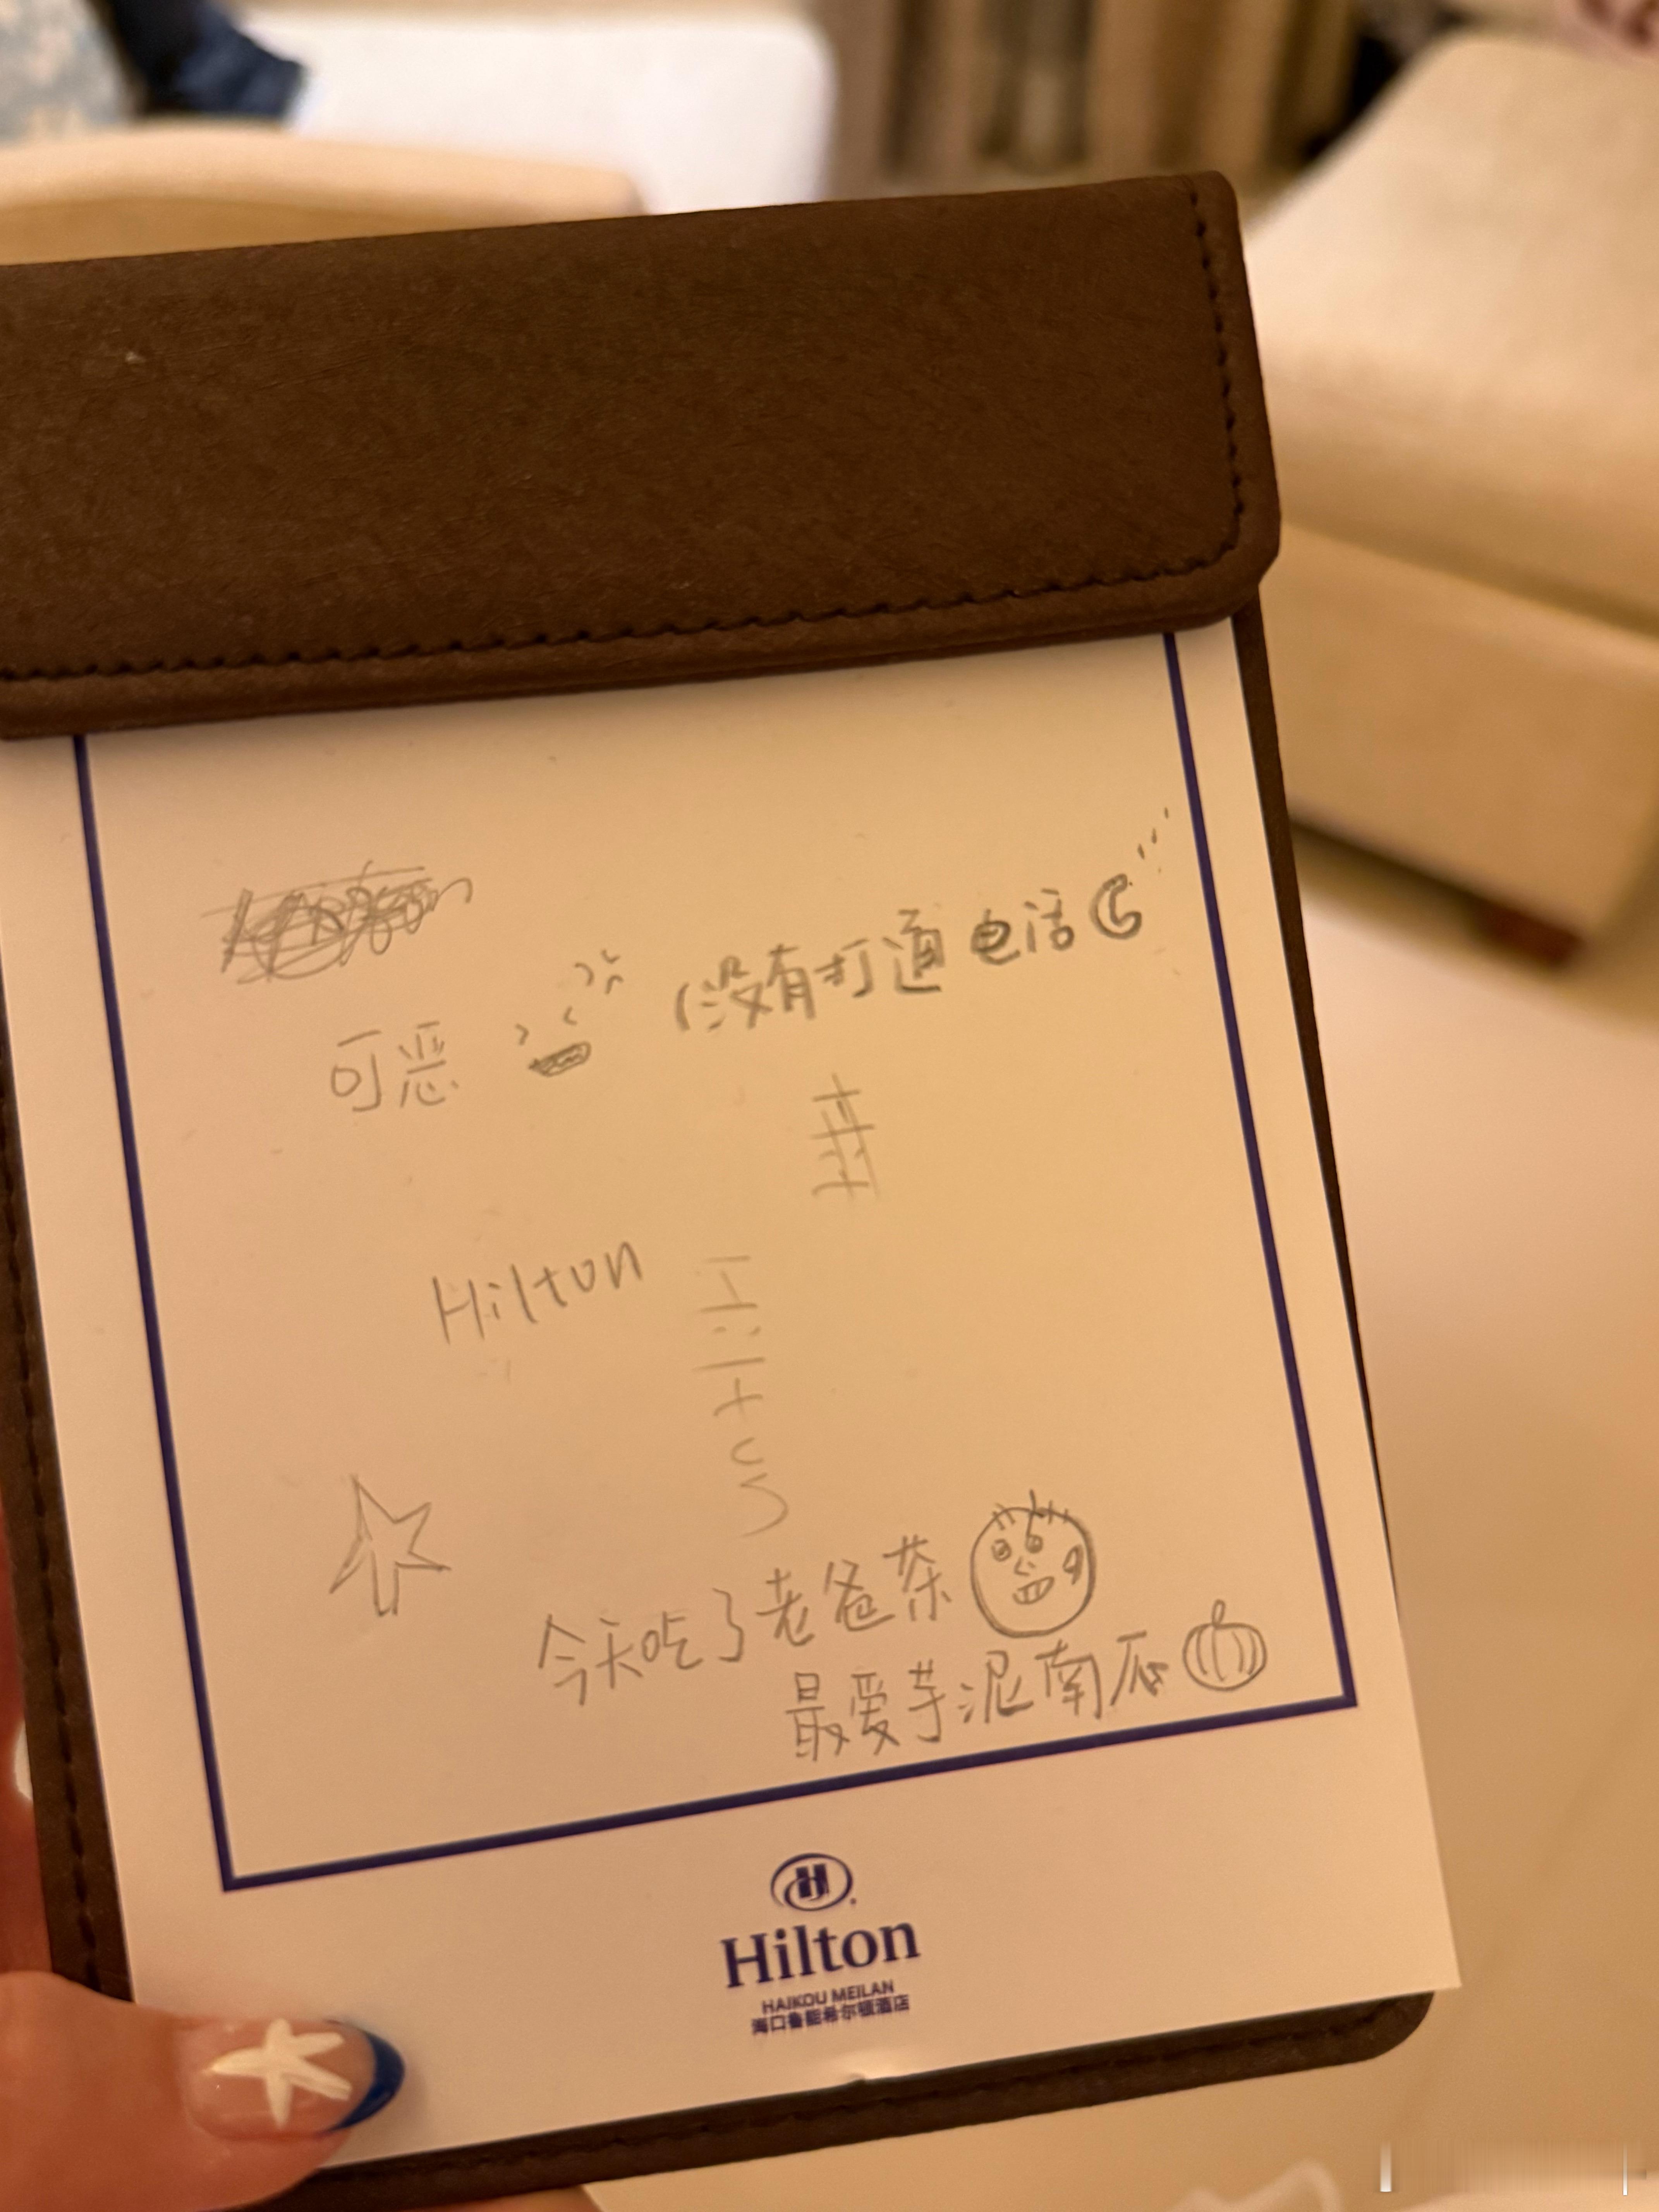 可恶 (没有打通电话
Hilton
今天吃了老爸茶
最爱芋泥南瓜
Hilton
HAIKOU MEILAN
海口鲁能希尔顿酒店